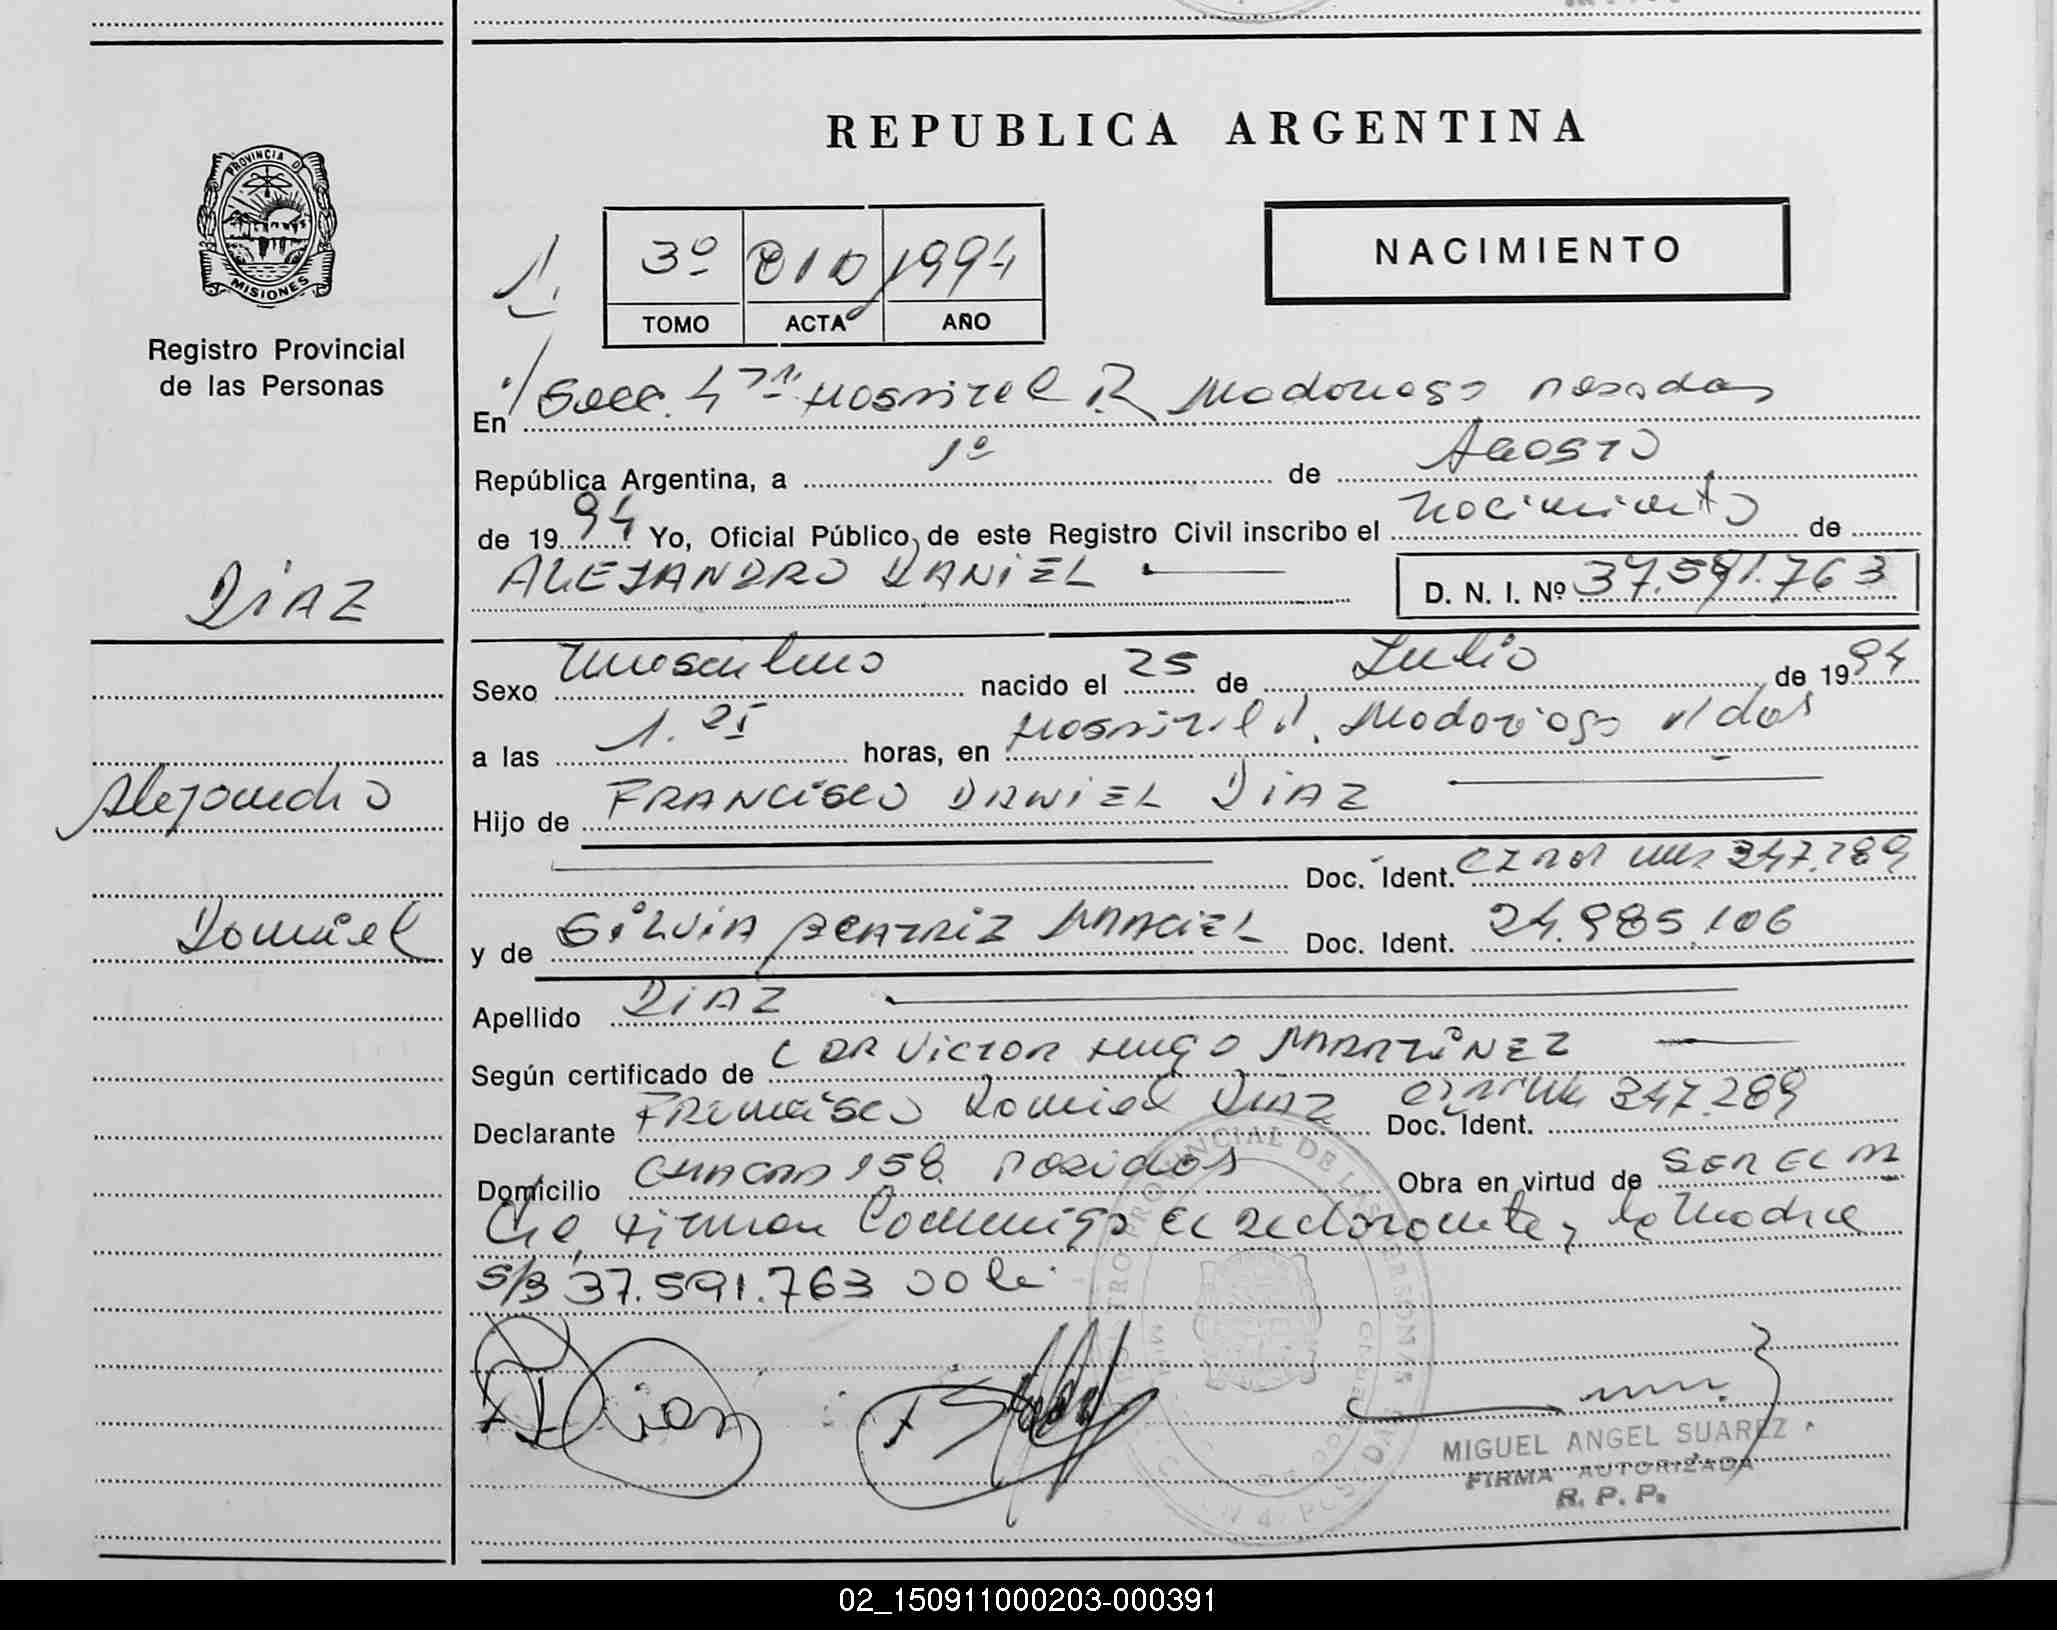 REPUBLICA ARGENTINA
PROVINCIA D
MISIONES
Registro Provincial
de las Personas
3º 010 1994
TOMO ACTA AÑO
NACIMIENTO
En Secc. 4ª Hospital R. Madariaga Posadas
República Argentina, a 1º de Agosto
de 1994 Yo, Oficial Público, de este Registro Civil inscribo el nacimiento de
ALEJANDRO DANIEL
D. N. I. Nº 37.591.763
DIAZ
Sexo masculino nacido el 25 de Julio de 1994
a las 1. horas, en Hospital Madariaga
Alejandro
Hijo de FRANCISCO DANIEL DIAZ
Doc. Ident. 247.289
Daniel
y de SILVIA BEATRIZ MACIEL Doc. Ident. 24.985.106
Apellido DIAZ
Según certificado de DR VICTOR HUGO MARTINEZ
Declarante FRANCISCO Daniel DIAZ Doc. Ident. 247.289
Domicilio CHACRA 158 Posadas Obra en virtud de SER EL P
firman Conmigo el declarante y la Madre
S/B 37.591.763 vale
Diaz
MIGUEL ANGEL SUAREZ
FIRMA AUTORIZADA
R. P. P.
02_150911000203-000391